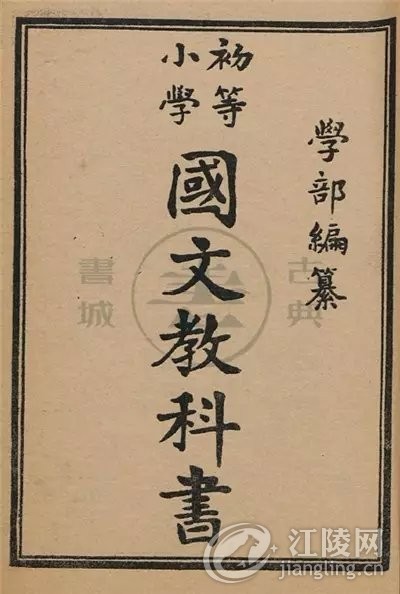 學部編纂
初等
小學
國文教科書
古典
書城
江陵网
jiangling.cn